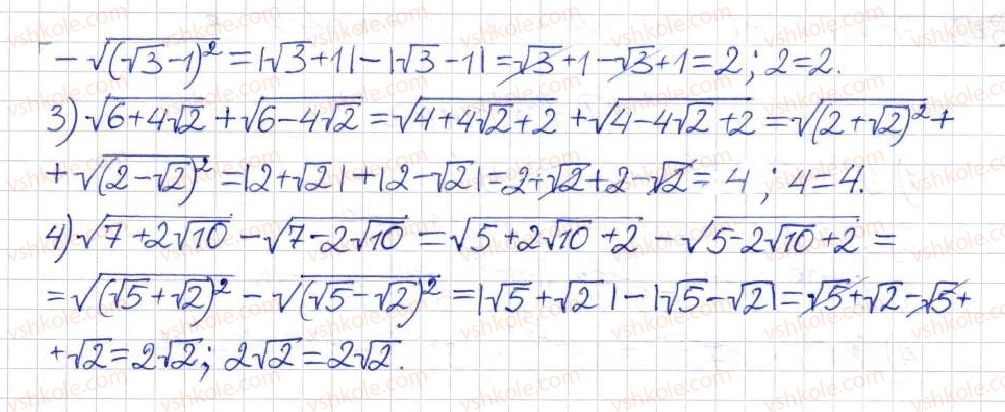 - √(√3-1)² = |√3+1| - |√3-1| = √3+1-√3+1=2; 2=2.
3) √6+4√2 + √6-4√2 = √4+4√2+2 + √4-4√2+2 = √(2+√2)² +
+ √(2-√2)² = |2+√2| + |2-√2| = 2+√2+2-√2 = 4; 4=4.
4) √7+2√10 - √7-2√10 = √5+2√10+2 - √5-2√10+2 =
= √(√5+√2)² - √(√5-√2)² = |√5+√2| - |√5-√2| = √5+√2-√5+
+√2=2√2; 2√2=2√2.
vshkole.com